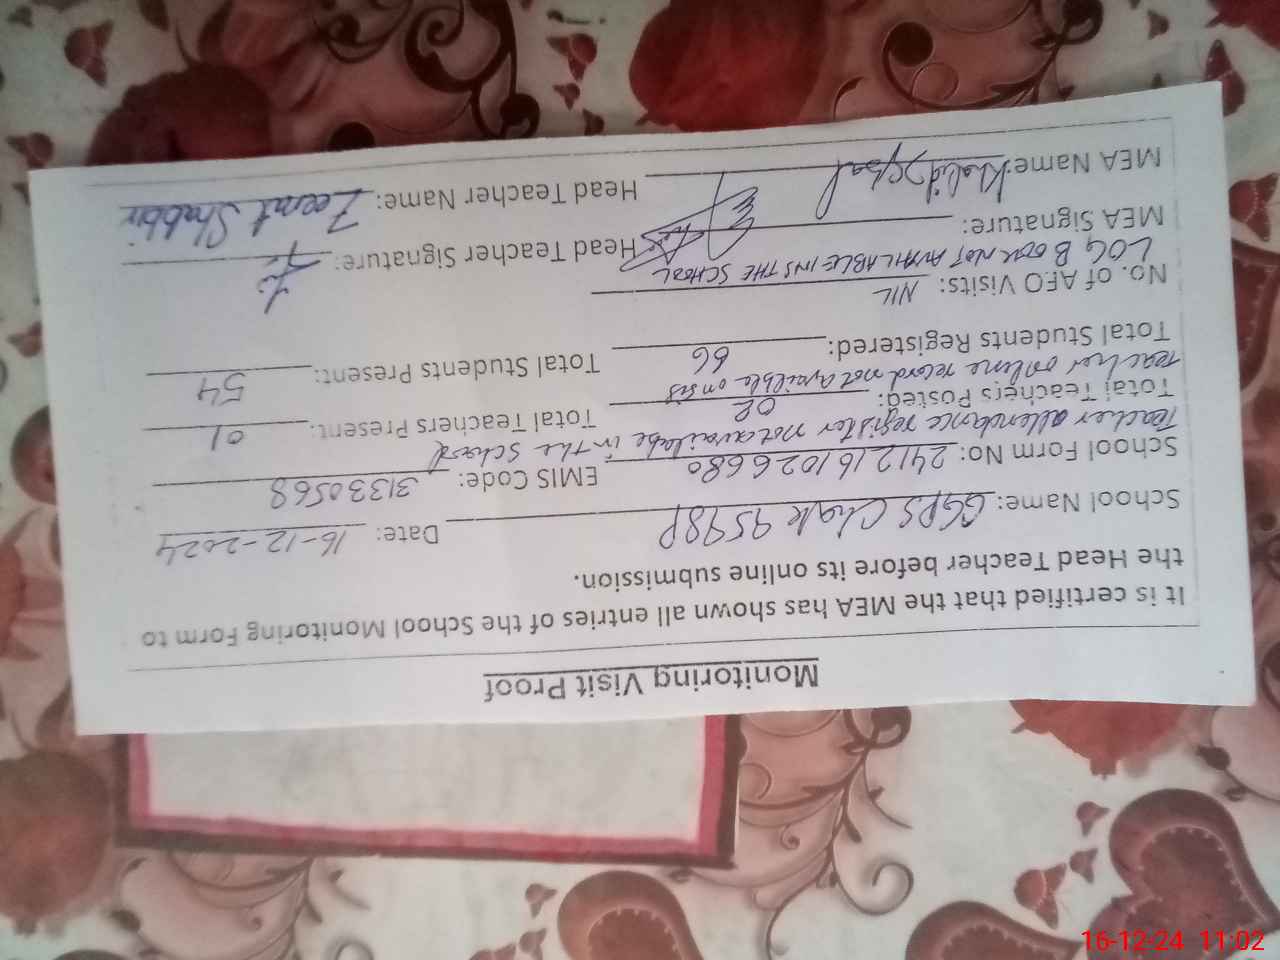 Monitoring Visit Proof
It is certified that the MEA has shown all entries of the School Monitoring Form to
the Head Teacher before its online submission.
School Name: GGPS Chak 95/8P Date: 16-12-2024
School Form No: 2412161026680 EMIS Code: 31330568
Teacher attendance register not available in the School
Total Teachers Posted: 02 Total Teachers Present: 01
Teacher online record not available on sis
Total Students Registered: 66 Total Students Present: 54
No. of AEO Visits: NIL
LOG BOOK NOT AVAILABLE INS THE SCHOOL
MEA Signature: Head Teacher Signature:
MEA Name: Khalid Iqbal Head Teacher Name: Zeenat Shabbir
16-12-24 11:02